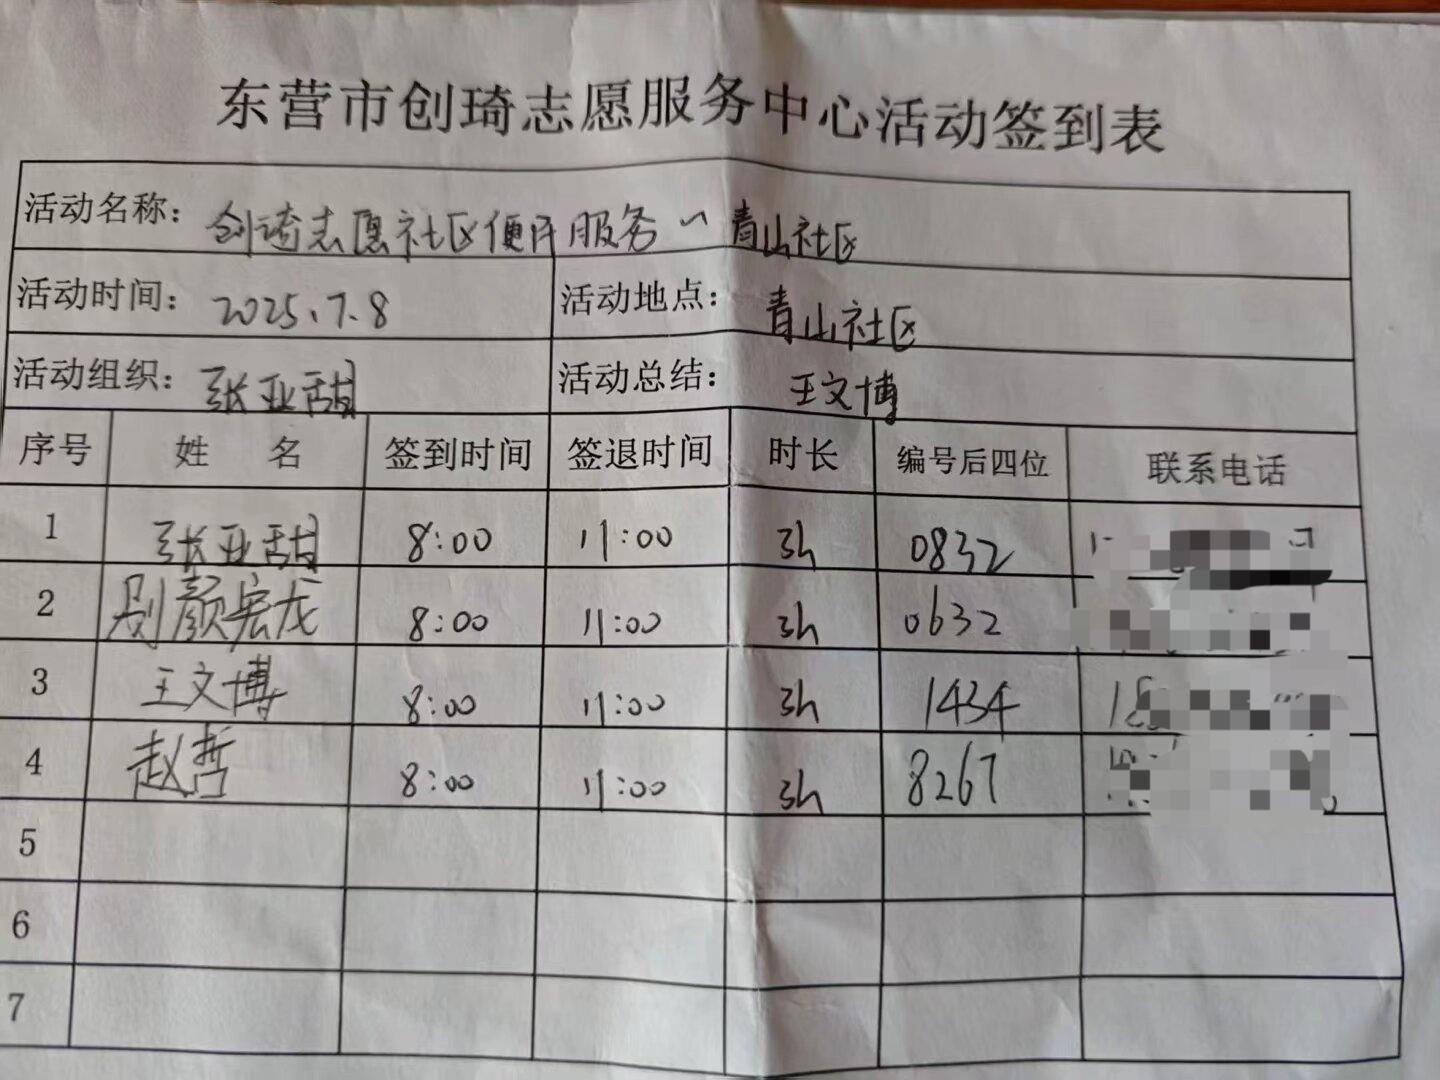 东营市创琦志愿服务中心活动签到表
活动名称：创琦志愿社区便民服务～青山社区
活动时间：2025.7.8 活动地点：青山社区
活动组织：张亚甜 活动总结：王文博
序号 姓 名 签到时间 签退时间 时长 编号后四位 联系电话
1 张亚甜 8:00 11:00 3h 0832
2 颜宏龙 8:00 11:00 3h 0632
3 王文博 8:00 11:00 3h 1434
4 赵哲 8:00 11:00 3h 8267
5
6
7